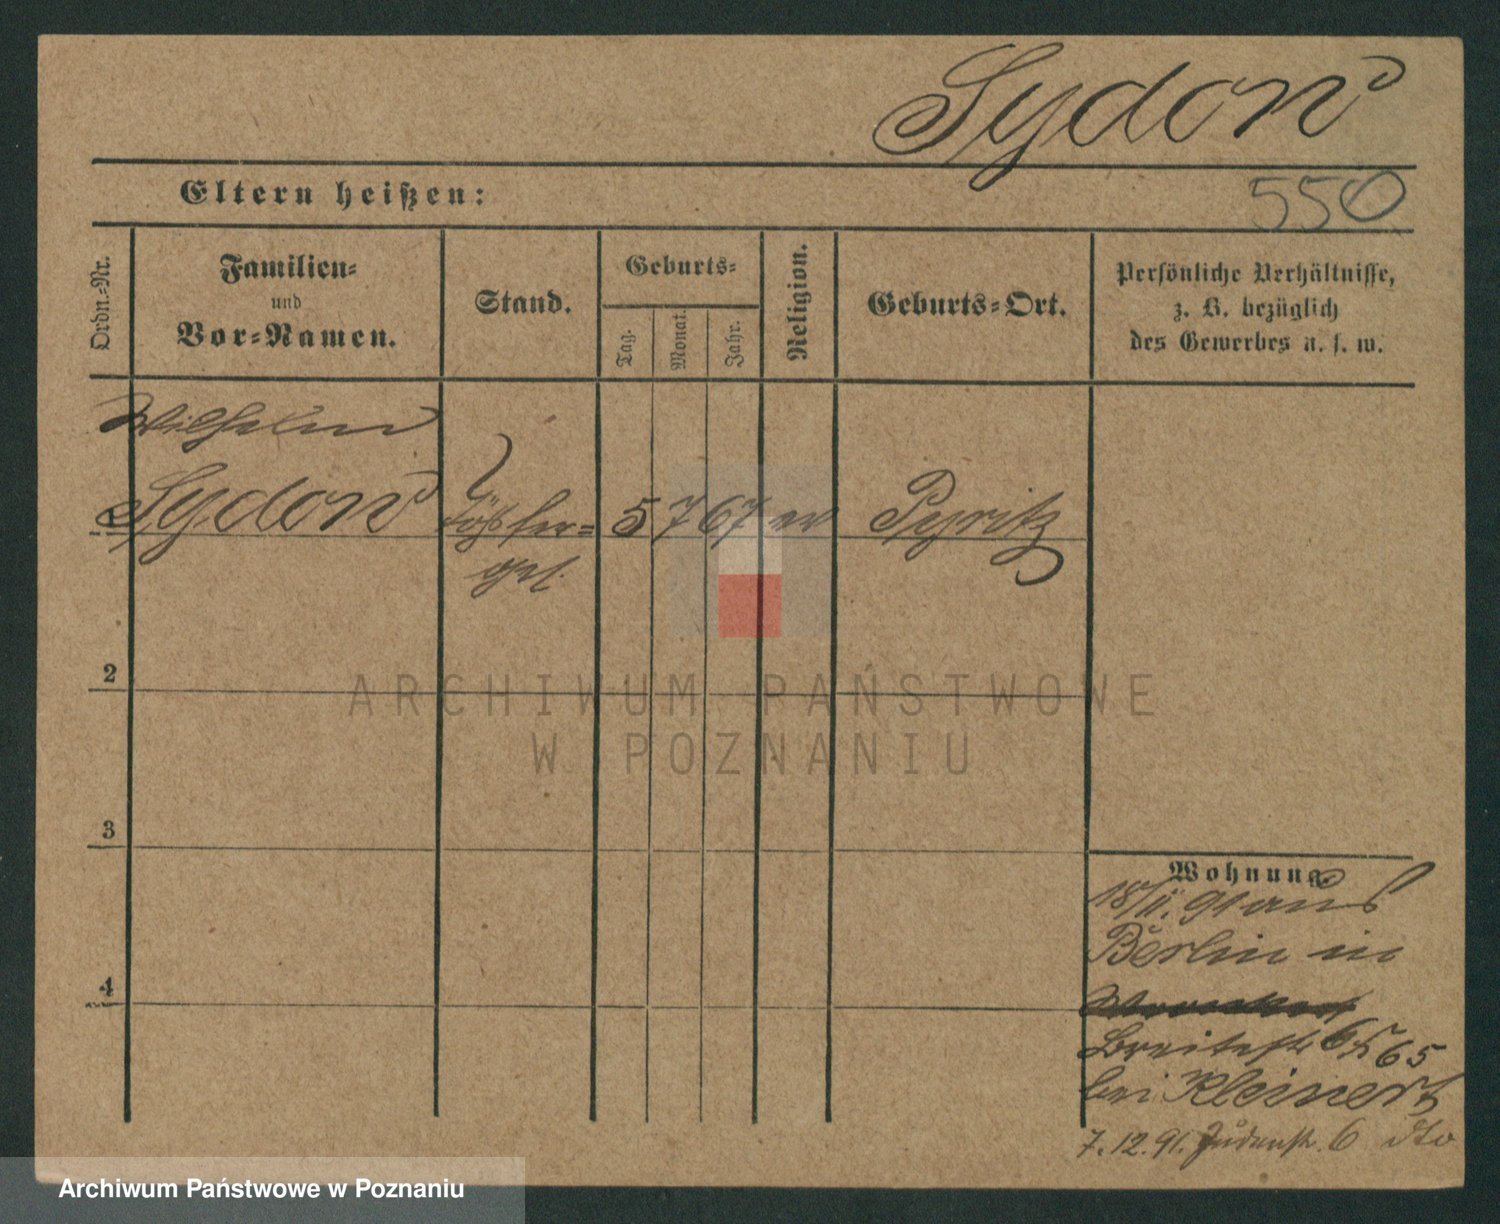 Sydow
Eltern heißen:
550
Ordn.-Nr.
Familien-
und
Vor-Namen.
Stand.
Geburts-
Tag.
Monat.
Jahr.
Religion.
Geburts-Ort.
Persönliche Verhältnisse,
z. B. bezüglich
des Gewerbes u. s. w.
Wilhelm
1 Sydow Töpfer= 5 7 67 ev Pyritz
ges.
2
ARCHIWUM PAŃSTWOWE
W POZNANIU
3
4
Wohnung.
18/11. 91 aus
Berlin in
Breitestr 65
bei Kleinert
7.12.91. Judenstr. 6 dto
Archiwum Państwowe w Poznaniu